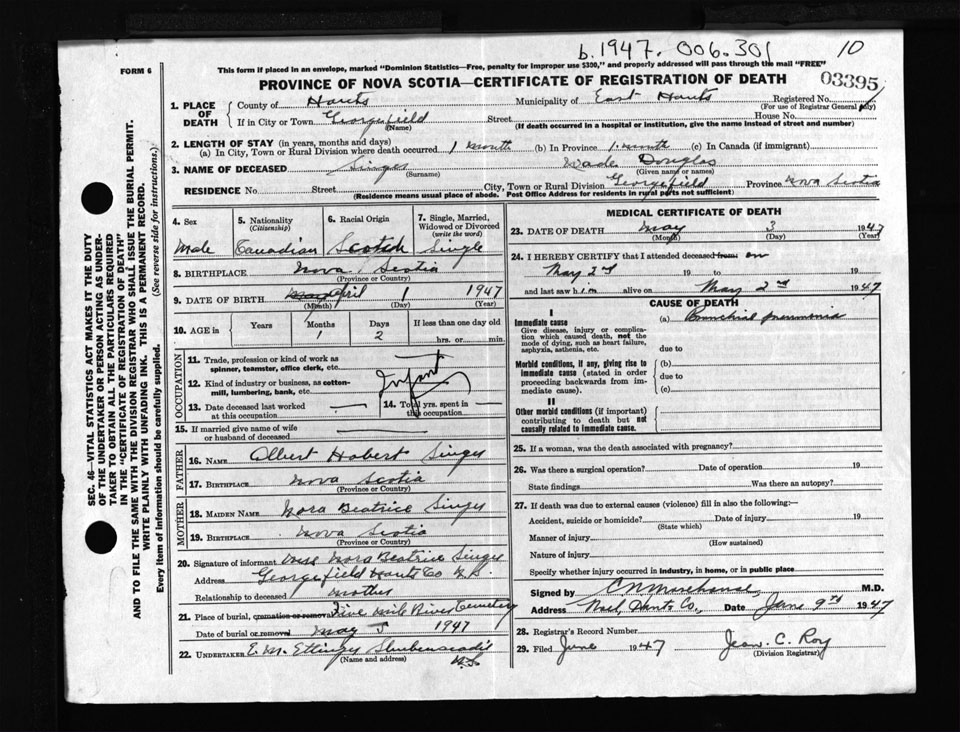 b.1947. 006.301
10
FORM 6
This form if placed in an envelope, marked "Dominion Statistics—Free, penalty for improper use $300," and properly addressed will pass through the mail "FREE"
PROVINCE OF NOVA SCOTIA—CERTIFICATE OF REGISTRATION OF DEATH
03395
1. PLACE OF DEATH
County of Hants Municipality of East Hants Registered No.
(For use of Registrar General only)
If in City or Town Georgefield Street House No.
(Name) (If death occurred in a hospital or institution, give the name instead of street and number)
2. LENGTH OF STAY (in years, months and days)
(a) In City, Town or Rural Division where death occurred 1 month (b) In Province 1 month (c) In Canada (if immigrant)
3. NAME OF DECEASED Singer Wade Douglas
(Surname) (Given name or names)
RESIDENCE No. Street City, Town or Rural Division Georgefield Province Nova Scotia
(Residence means usual place of abode. Post Office Address for residents in rural parts not sufficient)
SEC. 46—VITAL STATISTICS ACT MAKES IT THE DUTY
OF THE UNDERTAKER OR PERSON ACTING AS UNDER-
TAKER TO OBTAIN ALL THE PARTICULARS REQUIRED
IN THE "CERTIFICATE OF REGISTRATION OF DEATH"
AND TO FILE THE SAME WITH THE DIVISION REGISTRAR WHO SHALL ISSUE THE BURIAL PERMIT.
WRITE PLAINLY WITH UNFADING INK. THIS IS A PERMANENT RECORD.
Every item of information should be carefully supplied. (See reverse side for instructions.)
4. Sex 5. Nationality (Citizenship) 6. Racial Origin 7. Single, Married, Widowed or Divorced (write the word)
Male Canadian Scotish Single
8. BIRTHPLACE Nova Scotia
(Province or Country)
9. DATE OF BIRTH April 1 1947
(Month) (Day) (Year)
10. AGE in Years Months Days If less than one day old
1 2 hrs. or min.
OCCUPATION
11. Trade, profession or kind of work as spinner, teamster, office clerk, etc.
12. Kind of industry or business, as cotton-mill, lumbering, bank, etc. Infant
13. Date deceased last worked at this occupation
14. Total yrs. spent in this occupation
15. If married give name of wife or husband of deceased
FATHER
16. NAME Albert Hobert Singer
17. BIRTHPLACE Nova Scotia
(Province or Country)
MOTHER
18. MAIDEN NAME Nora Beatrice Singer
19. BIRTHPLACE Nova Scotia
(Province or Country)
20. Signature of informant Mrs Nora Beatrice Singer
Address Georgefield Hants Co N.S.
Relationship to deceased Mother
21. Place of burial, cremation or removal Five Mile River Cemetery
Date of burial or removal May 5 1947
22. UNDERTAKER E. M. Ettinger Shubenacadie
(Name and address) N.S.
MEDICAL CERTIFICATE OF DEATH
23. DATE OF DEATH May 3 1947
(Month) (Day) (Year)
24. I HEREBY CERTIFY that I attended deceased from: on
May 2nd 19 to 19
and last saw him alive on May 2nd 1947
CAUSE OF DEATH
I
Immediate cause
Give disease, injury or complication which caused death, not the mode of dying, such as heart failure, asphyxia, asthenia, etc.
(a) Bronchial pneumonia
due to
Morbid conditions, if any, giving rise to immediate cause (stated in order proceeding backwards from immediate cause).
(b)
due to
(c)
II
Other morbid conditions (if important) contributing to death but not causally related to immediate cause.
25. If a woman, was the death associated with pregnancy?
26. Was there a surgical operation? Date of operation 19
State findings Was there an autopsy?
27. If death was due to external causes (violence) fill in also the following:—
Accident, suicide or homicide? Date of injury 19
(State which)
Manner of injury
(How sustained)
Nature of injury
Specify whether injury occurred in industry, in home, or in public place
Signed by M.D.
Address Hants Co., Date June 9th 1947
28. Registrar's Record Number
29. Filed June 1947 Jean. C. Roy
(Division Registrar)